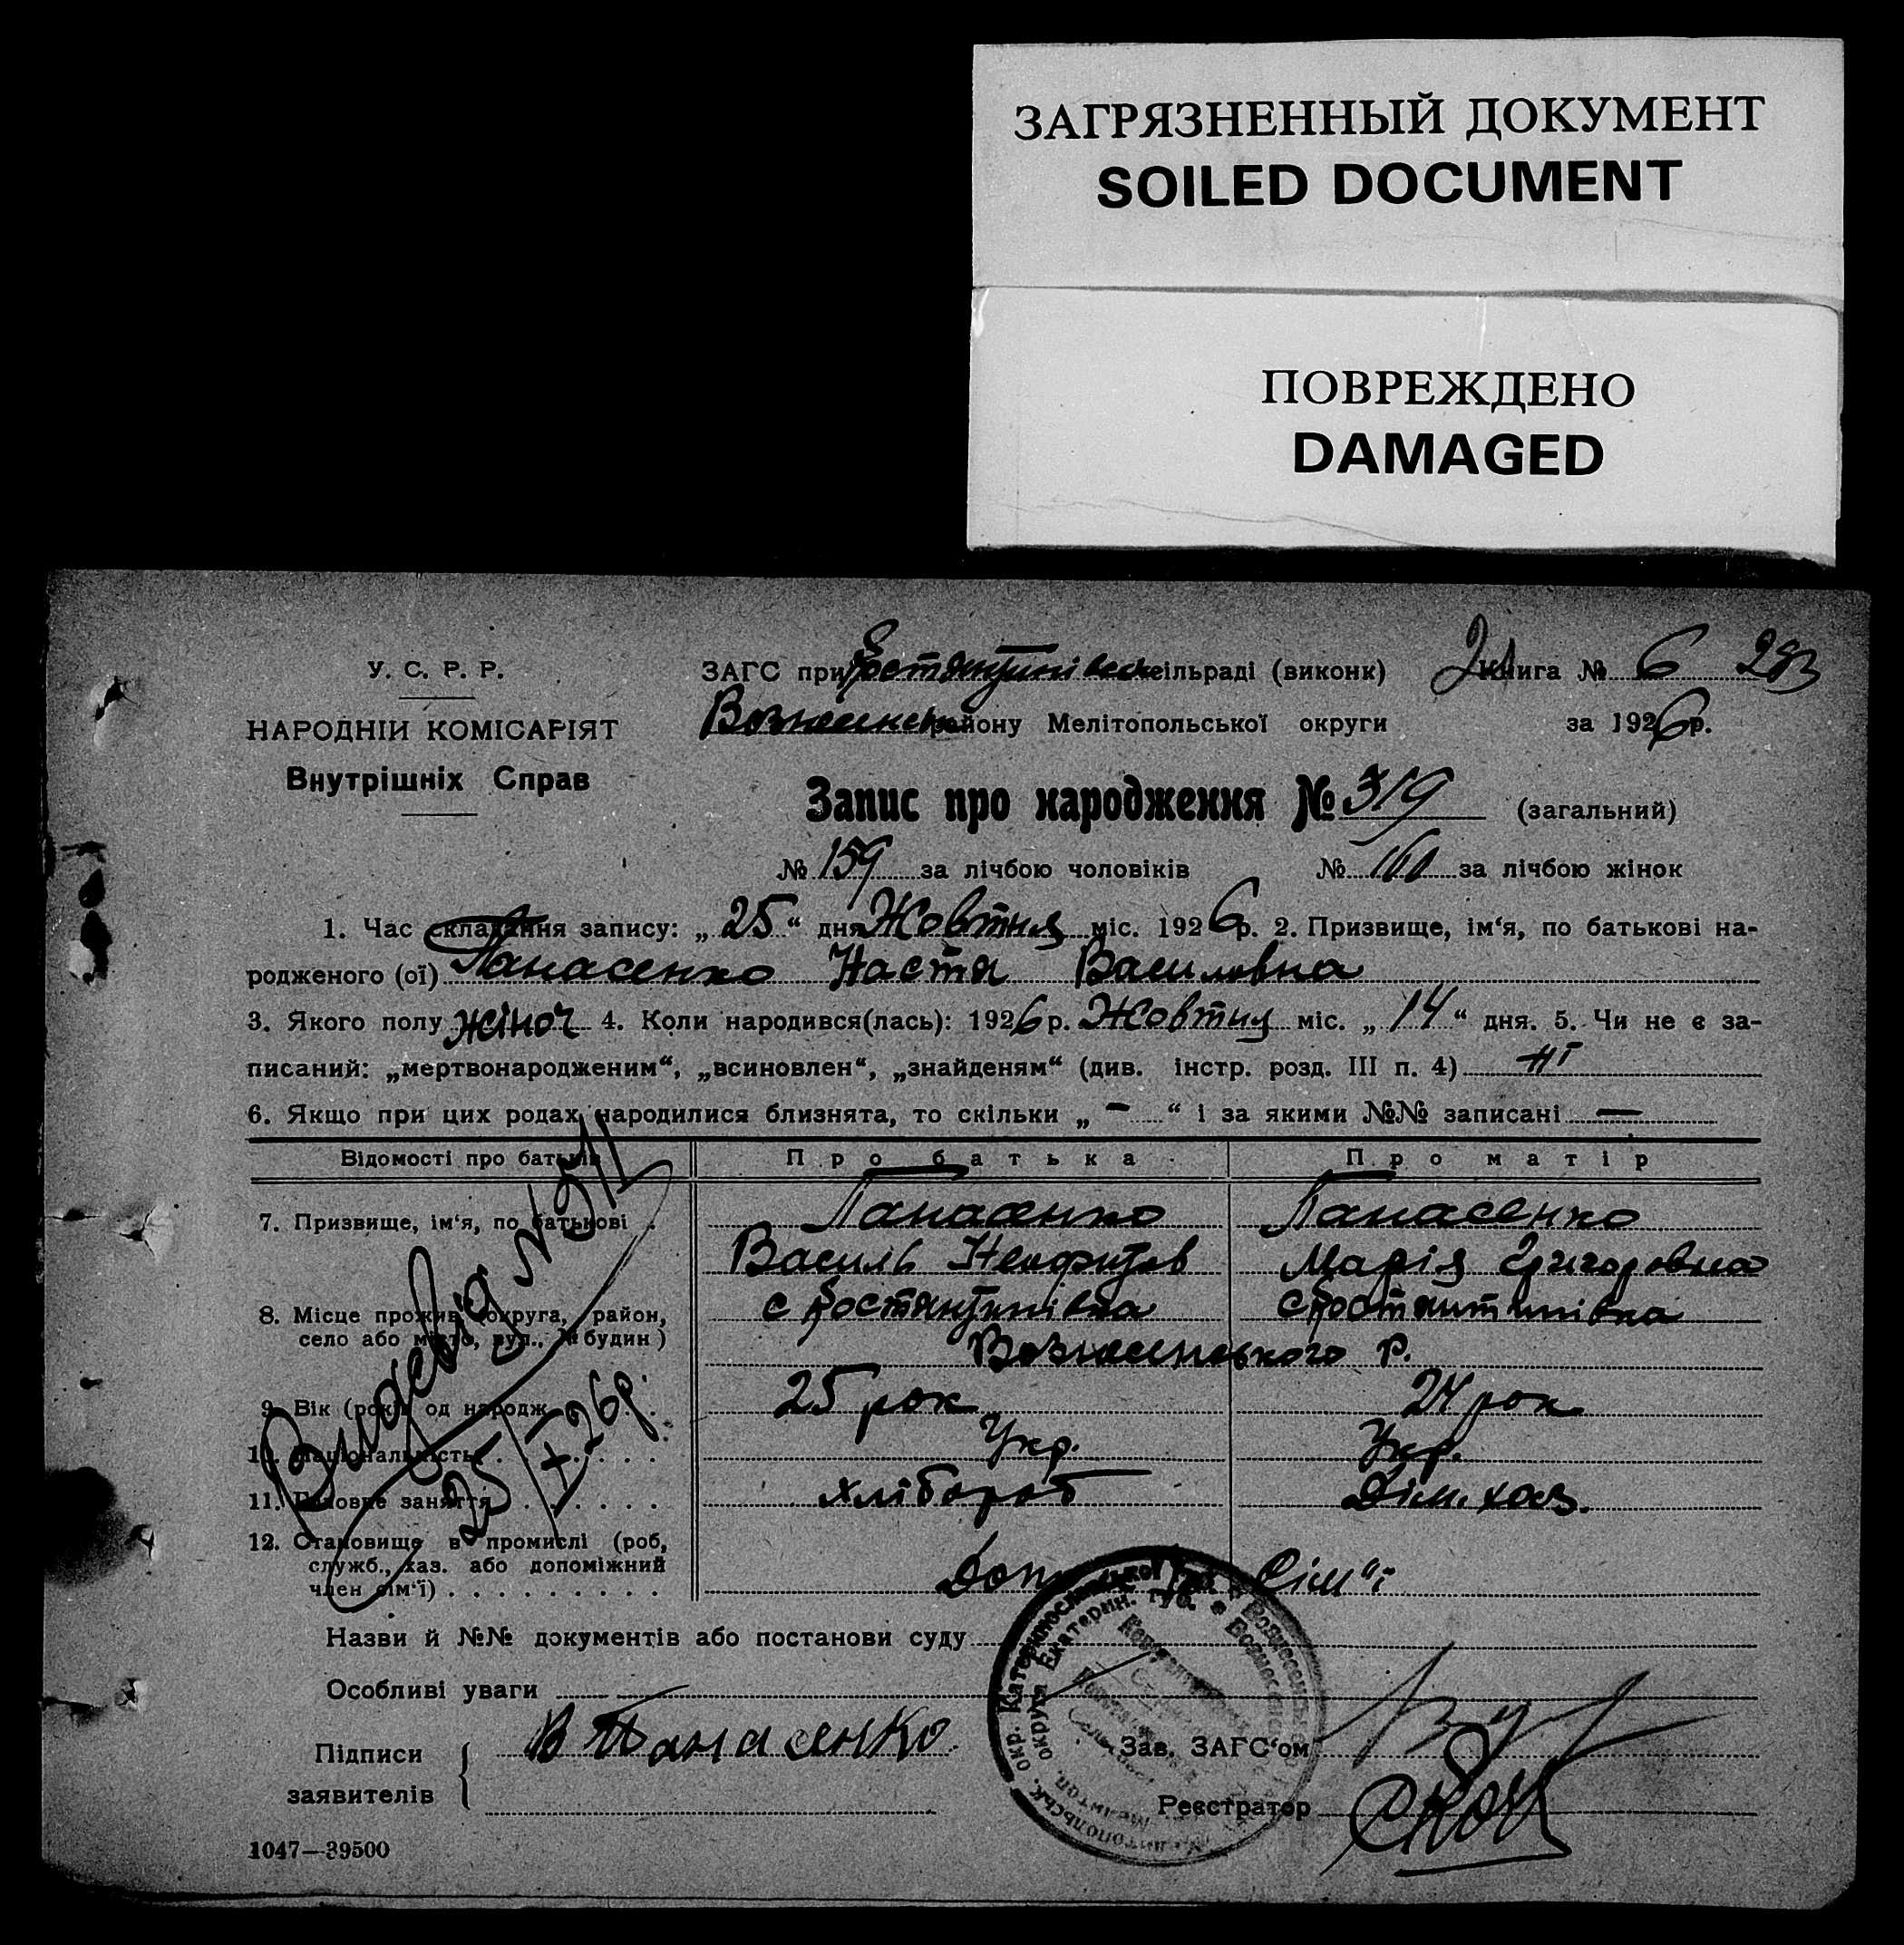 ЗАГРЯЗНЕННЫЙ ДОКУМЕНТ
SOILED DOCUMENT
ПОВРЕЖДЕНО
DAMAGED
У. С. Р. Р.
НАРОДНІЙ КОМІСАРІЯТ
Внутрішніх Справ
ЗАГС при сільраді (виконк) Книга № 6 283
району Мелітопольської округи за 1926 р.
Запис про народження № 319 (загальний)
№ 159 за лічбою чоловіків № 160 за лічбою жінок
1. Час складання запису: „ 25 “ дня Жовтня міс. 1926 р. 2. Призвище, ім‘я, по батькові на-
родженого (ої) Панасенко Настя Василовна
3. Якого полу жіноч 4. Коли народився(лась): 1926 р. Жовтня міс. „ 14 “ дня. 5. Чи не є за-
писаний: „мертвонародженим“, „всиновлен“, „знайденям“ (див. інстр. розд. III п. 4) ні
6. Якщо при цих родах народилися близнята, то скільки „ – “ і за якими №№ записані —
Відомості про батьків Про батька Про матір
7. Призвище, ім‘я, по батькові . Панасенко Панасенко
Василь Неофитов Марія Григоровна
8. Місце прожив. (округа, район, с Костянтинівка с Костянтинівка
село або місто, вул., № будин)
Вознесенського р.
9. Вік (років од народж 25 рок 24 рок
10. Національність Укр. Укр.
11. Головне заняття хлібороб Дом. хаз.
12. Становище в промислі (роб,
служб., хаз. або допоміжний
член сім‘ї) Доп Сім"ї
Видана
25/X-26р.
Назви й №№ документів або постанови суду
Особливі уваги
Підписи В Панасенко Зав. ЗАГС‘ом
заявителів Реєстратор
1047—39500